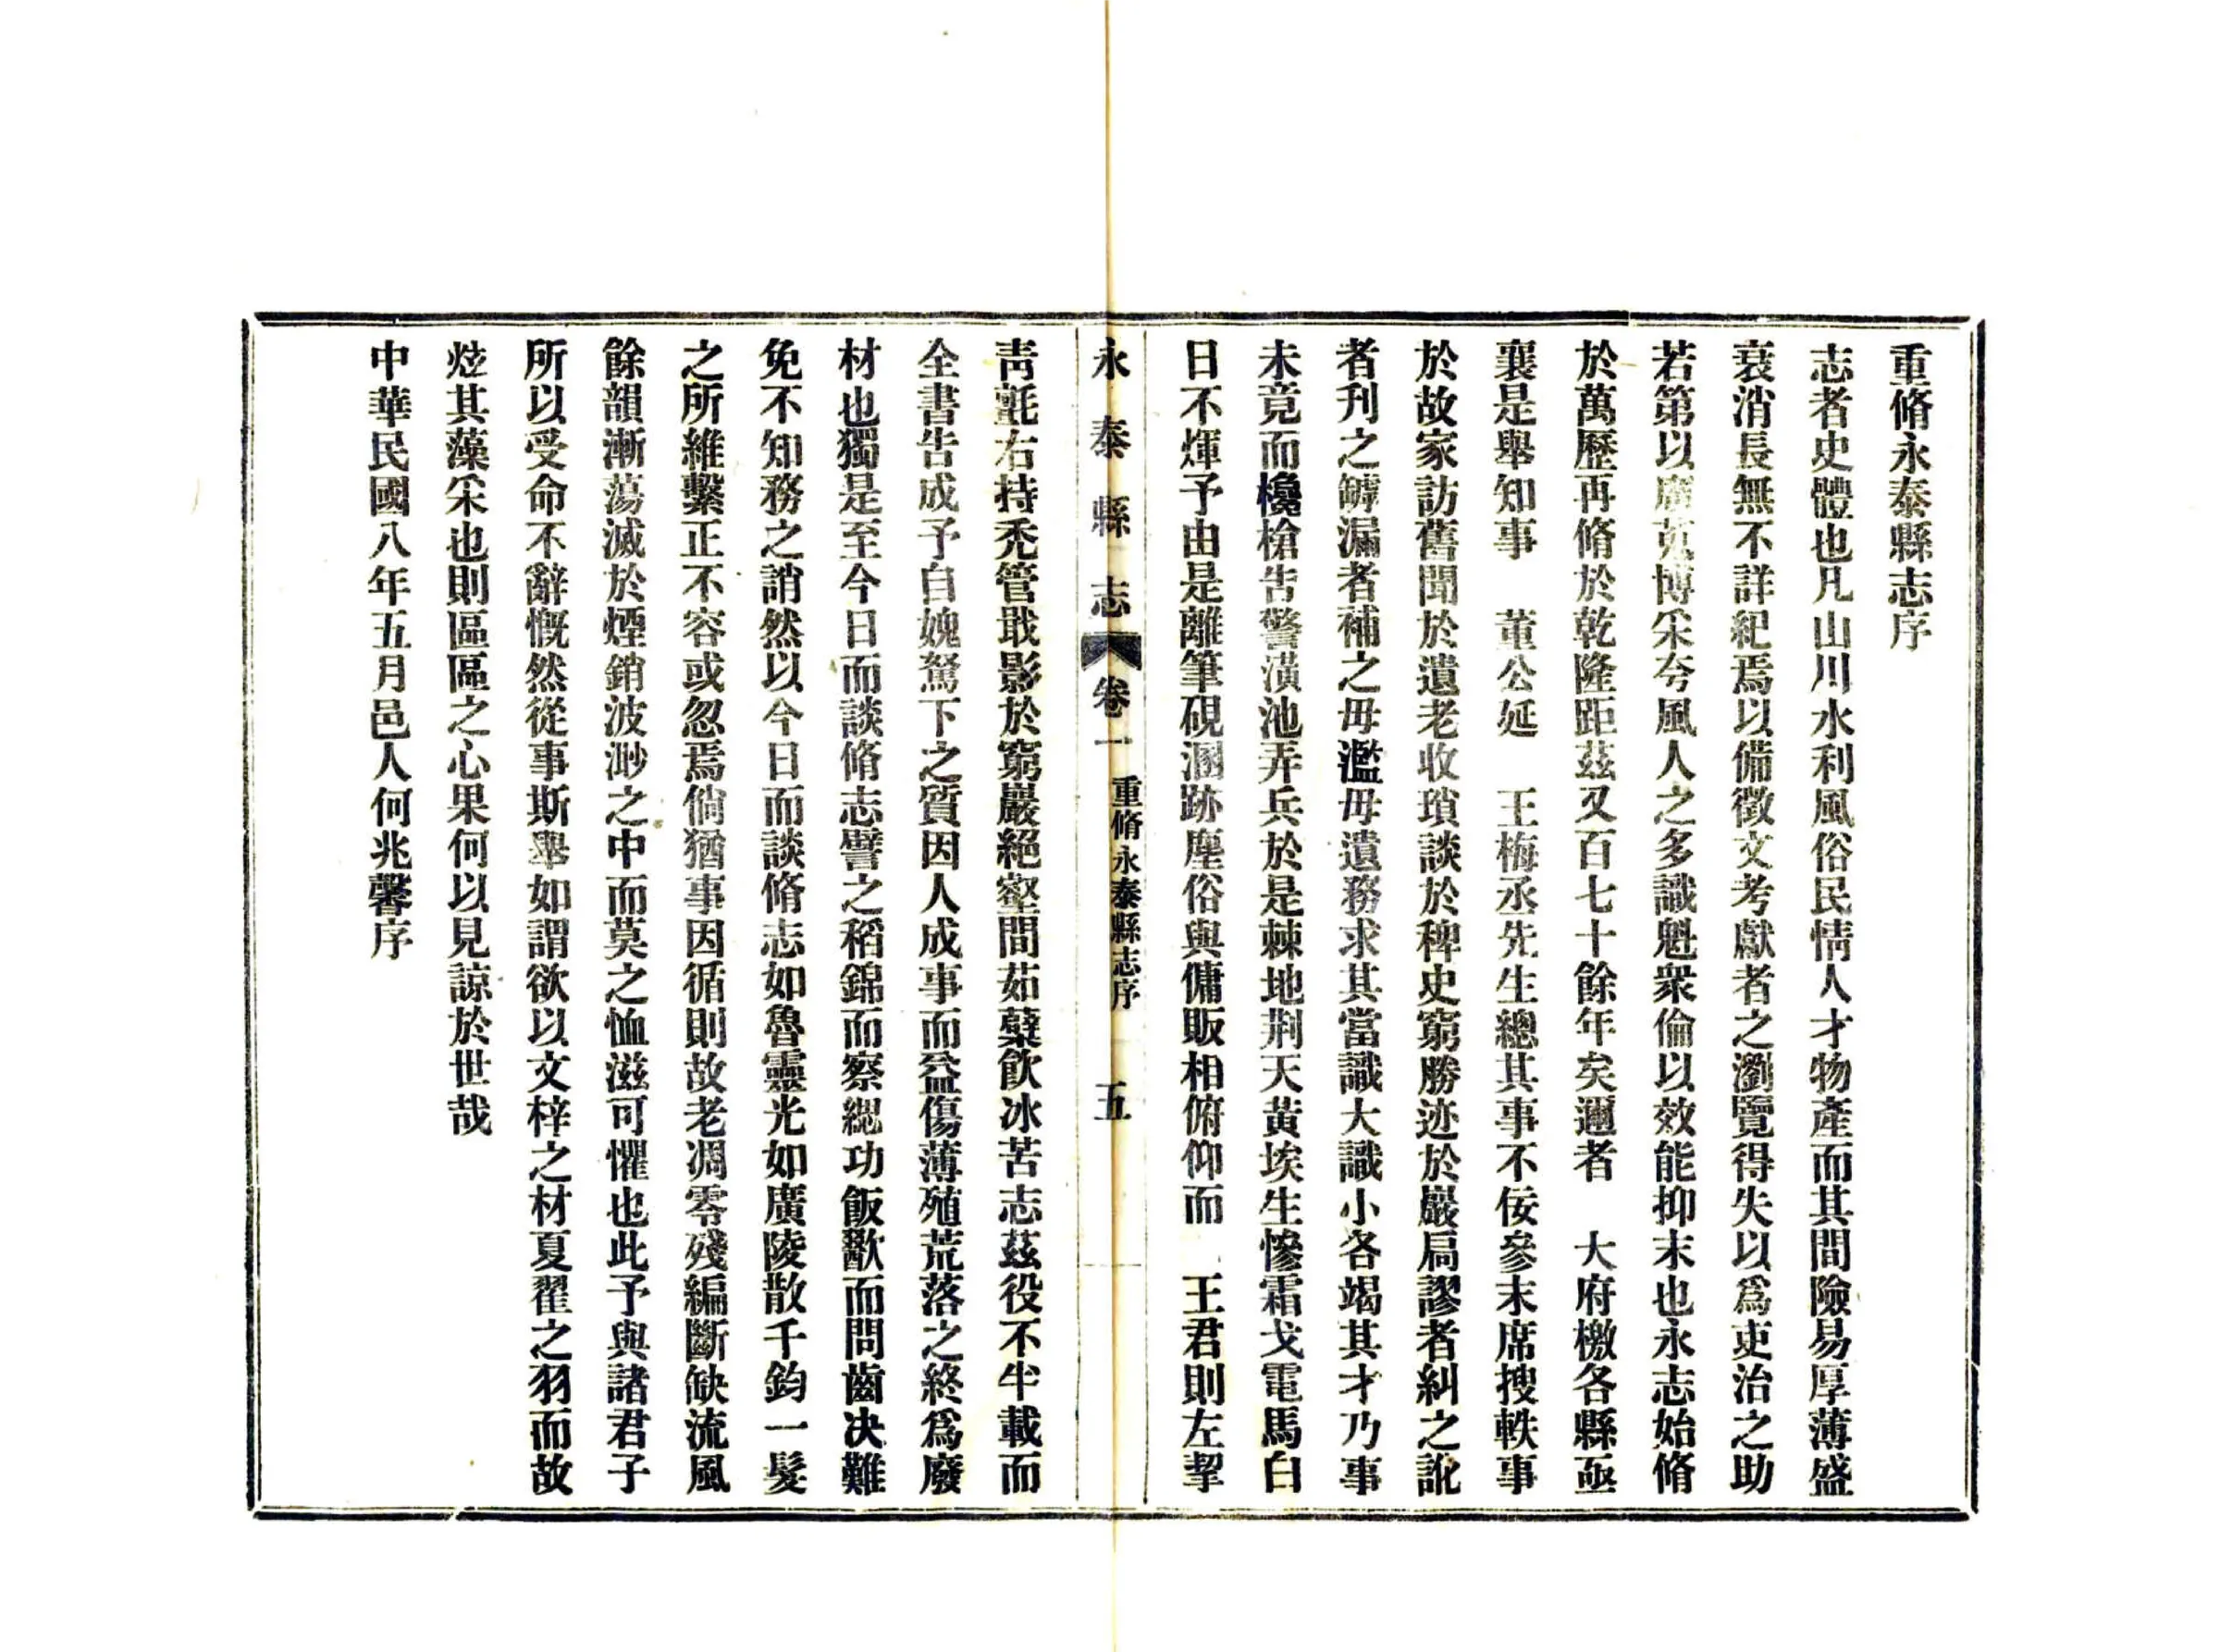 重脩永泰縣志序
志者史體也凡山川水利風俗民情人才物產而其間險易厚薄盛
衰消長無不詳紀焉以備徵文考獻者之瀏覽得失以爲吏治之助
若第以廣蒐博采夸風人之多識魁衆倫以效能抑末也永志始脩
於萬歷再脩於乾隆距茲又百七十餘年矣邇者　大府檄各縣亟
襄是舉知事　董公延　王梅丞先生總其事不佞參末席搜軼事
於故家訪舊聞於遺老收瑣談於稗史窮勝迹於巖扃謬者糾之訛
者刋之罅漏者補之毋濫毋遺務求其當識大識小各竭其才乃事
未竟而欃槍告警潢池弄兵於是棘地荆天黃埃生慘霜戈電馬白
日不煇予由是離筆硯溷跡塵俗與傭販相俯仰而　王君則左挈
永泰縣志　卷一　重脩永泰縣志序　五
靑氈右持禿管戢影於窮巖絕壑間茹蘗飮冰苦志茲役不半載而
全書告成予自媿駑下之質因人成事而益傷薄殖荒落之終爲廢
材也獨是至今日而談脩志譬之稻錦而察緦功飯歠而問齒决難
免不知務之誚然以今日而談脩志如魯靈光如廣陵散千鈞一髮
之所維繫正不容或忽焉倘猶事因循則故老凋零殘編斷缺流風
餘韻漸蕩滅於煙銷波渺之中而莫之恤滋可懼也此予與諸君子
所以受命不辭慨然從事斯舉如謂欲以文梓之材夏翟之羽而故
炫其藻采也則區區之心果何以見諒於世哉
中華民國八年五月邑人何兆馨序